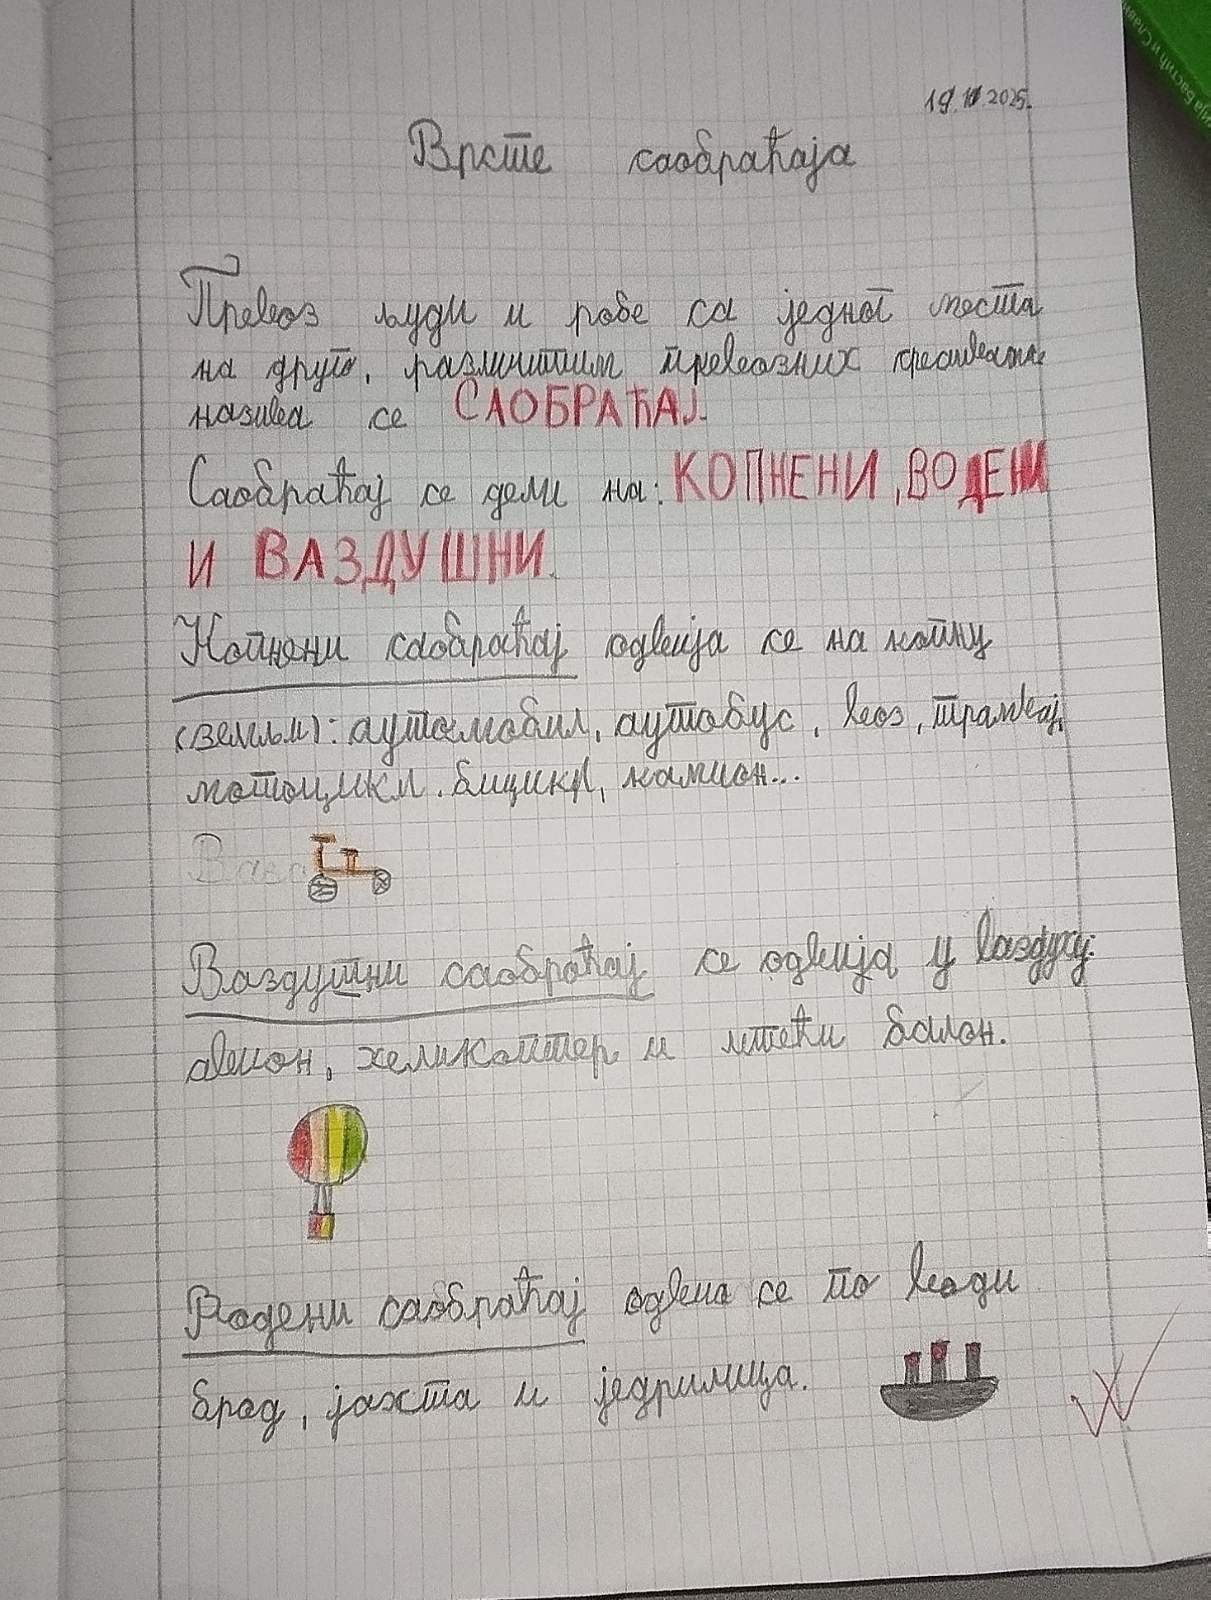 19.11.2025.
Врсте саобраћаја
Превоз људи и робе са једног места
на друго, различитим превозних средствима
назива се САОБРАЋАЈ.
Саобраћај се дели на: КОПНЕНИ, ВОДЕНИ
И ВАЗДУШНИ.
Копнени саобраћај одвија се на копну
(земљи): аутомобил, аутобус, воз, трамвај,
мотоцикл. бицикл, камион...
Ваздушни саобраћај се одвија у ваздуху:
авион, хеликоптер и летећи балон.
Водени саобраћај одвиа се по води
брод, јахта и једрилица.